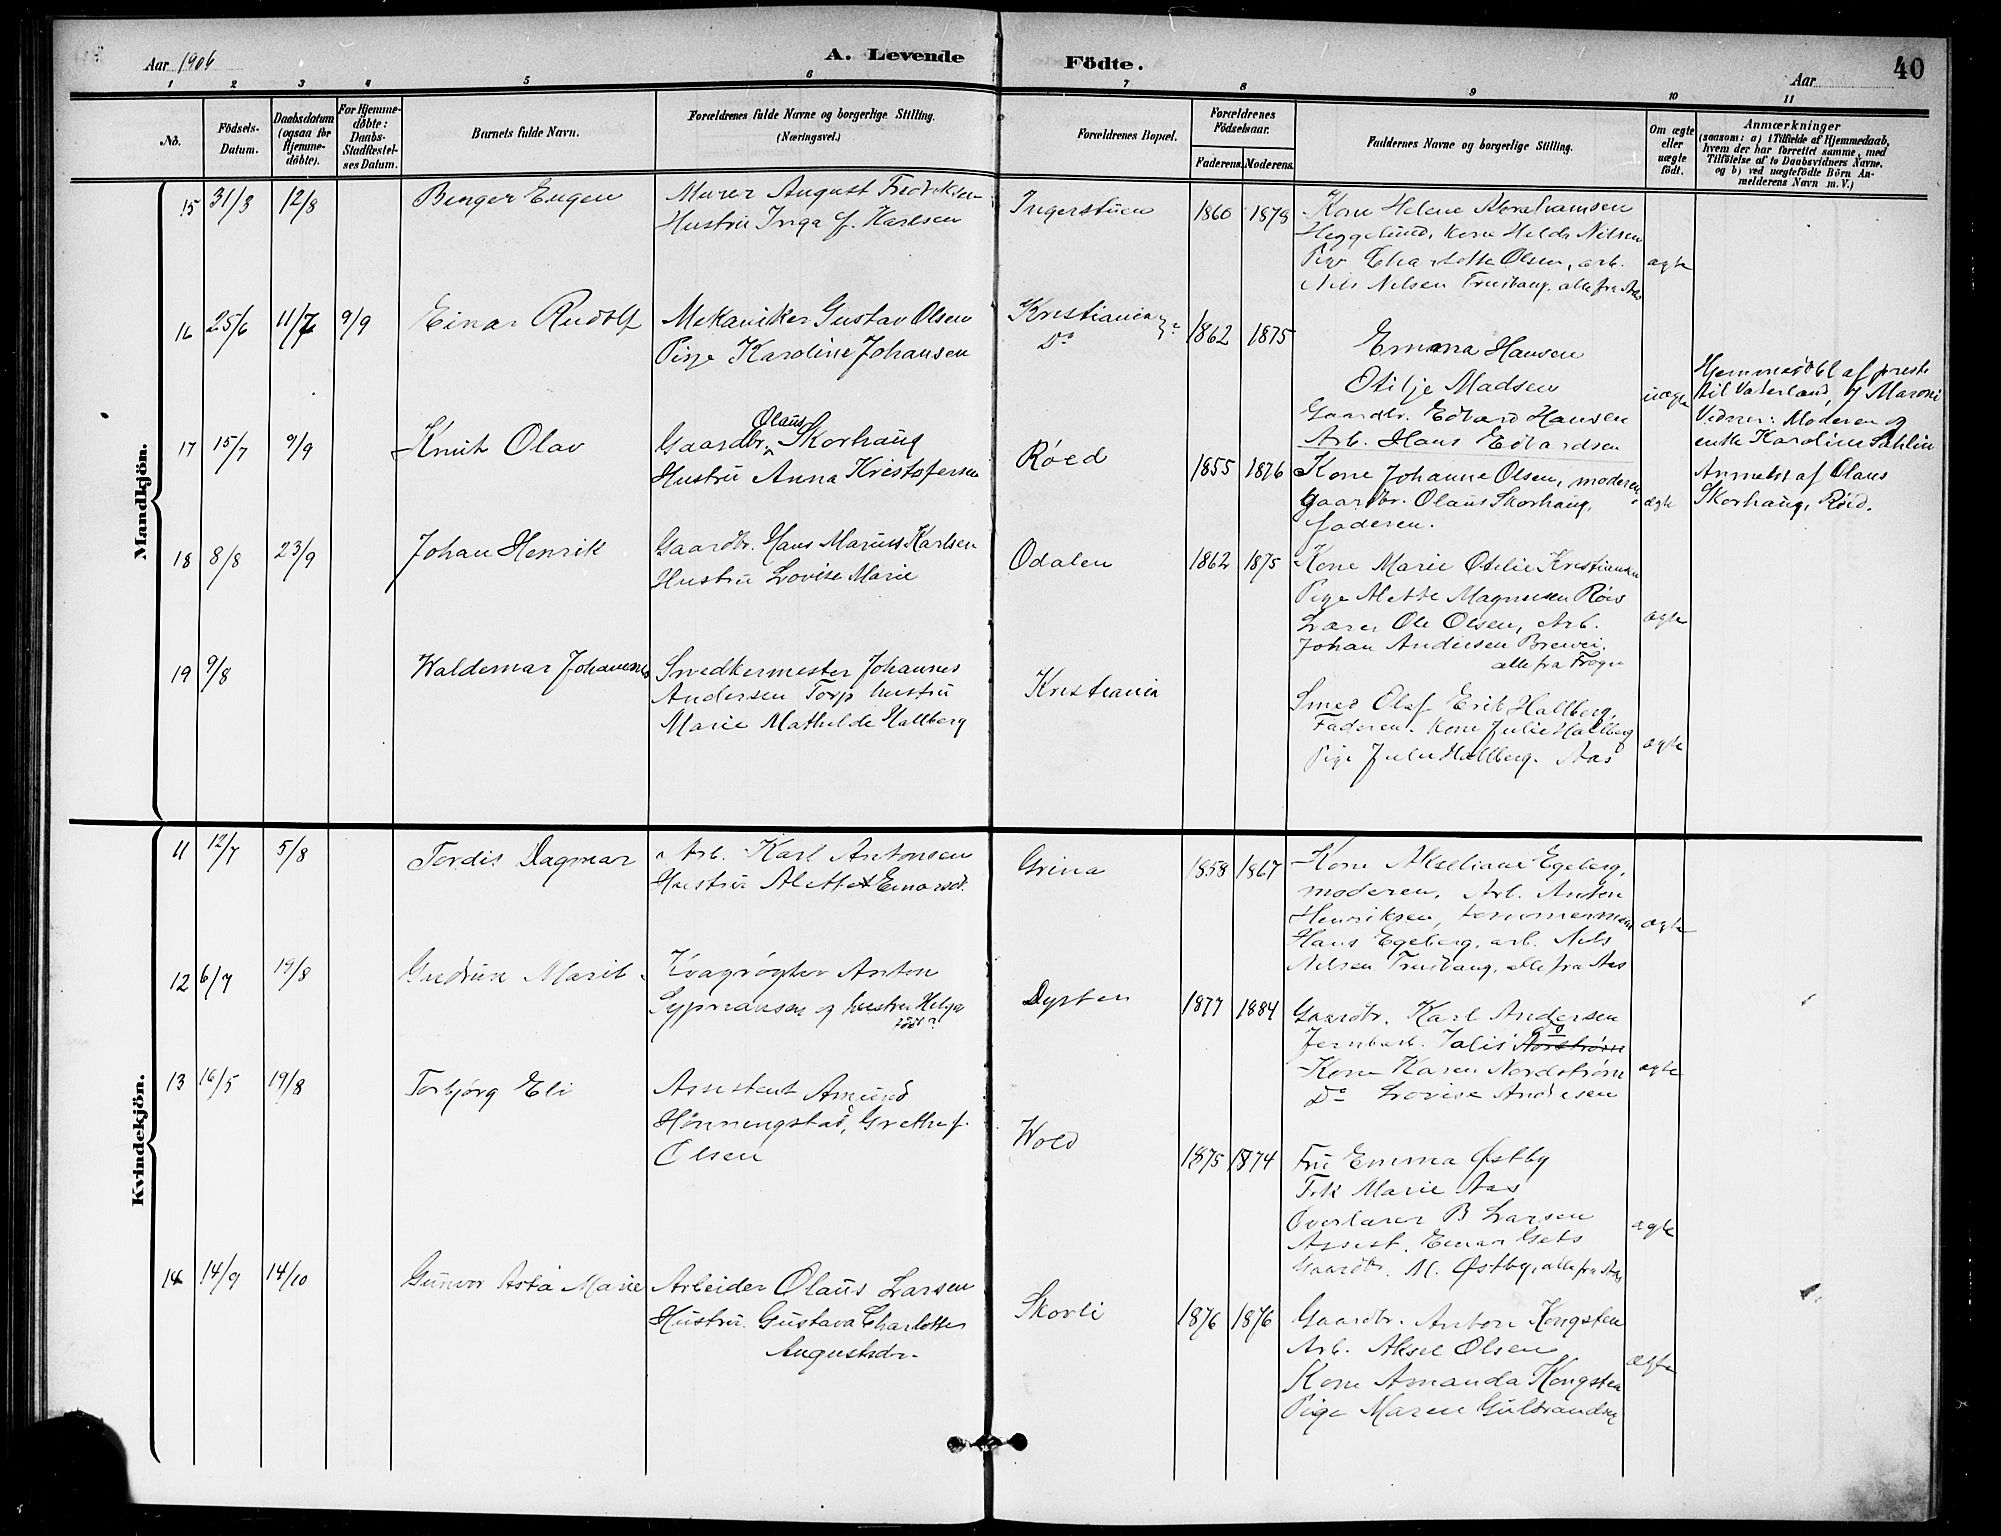 Aar 1906
A. Levende
Födte.
Aar
40
1 2 3 4 5 6 7 8 9 10 11
No.
Födsels-
Datum.
Daabsdatum
(ogsaa for
Hjemme-
döbte).
For Hjemme-
döbte:
Daabs-
Stadfæstel-
ses Datum.
Barnets fulde Navn.
Forældrenes fulde Navne og borgerlige Stilling.
(Næringsvei.)
Forældrenes Bopæl.
Forældrenes
Födselsaar.
Faderens. Moderens.
Faddernes Navne og borgerlige Stilling.
Om ægte
eller
uægte
födt.
Anmærkninger
(saasom: a) i Tilfælde af Hjemmedaab,
hvem der har forrettet samme, med
Tilföielse af to Daabsvidners Navne.
og b) ved uægtefödte Börn An-
melderens Navn m. V.)
Mandkjön.
15 31/3 12/8
Birger Eugen
Murer August Fredriksen
Hustru Inga f. Karlsen
Ingerstuen
1860 1878
Kone Helene Abrahamsen
Heggelund, Kone Hilda Nilsen
Pige Charlotte Olsen, arb.
Nils Nilsen Trustvang, alle fra Aas
ægte
16 25/6 11/7 9/9
Einar Rudolf
Mekaniker Gustav Olsen
Pige Karoline Johansen
Kristiania
Do
1862 1875
Emma Hansen
Otilje Madsen
Gaardbr. Edvard Hansen
Arb. Hans Edvardsen
uægte
Hjemmedøbt af prest
til Vaterland, Maroni
Vidner: Moderen og
enke Karoline Sahlin
17 15/7 9/9
Knut Olav
Olaus
Gaardbr. Skorhaug
Hustru Anna Kristofersen
Røed
1855 1876
Kone Johanne Olsen, moderen,
Gaardbr. Olaus Skorhaug,
faderen.
ægte
Anmeldt af Olaus
Skorhaug, Røed.
18 8/8 23/9
Johan Henrik
Gaardbr. Hans Marius Karlsen
Hustru Lovise Marie
Odalen
1862 1875
Kone Marie Otilie Kristiansen
Pige Alette Magnusen Røis
Lærer Ole Olsen, Arb.
Johan Andersen Brevei,
alle fra Frogn
ægte
19 9/8
Waldemar Johannes
Snedkermester Johannes
Andersen Torp hustru
Marie Mathilde Hallberg
Kristiania
Smed Olaf Erik Hallberg,
Faderen. Kone Julie Hallberg
Pige Julie Hallberg. Aas
ægte
Kvindekjön.
11 12/7 5/8
Tordis Dagmar
Arb. Karl Antonsen
Hustru Alette Einarsd.
Grina
1858 1867
Kone Akseliane Egeberg,
moderen, Arb. Anton
Henriksen, tømmermand
Hans Egeberg, arb. Nils
Nilsen Trustvang, alle fra Aas
ægte
12 6/7 19/8
Gudrun Marit
Kvægrøgter Anton
Sypriansen og hustru Helga
født
Dysten
1877 1884
Gaardbr. Karl Andersen
Jernbarb. Talis Nordstrøm
Do
Kone Karen Nordstrøm
Do Lovise Andersen
ægte
13 16/5 19/8
Torbjørg Eli
Assistent Amund
Hønningstad, Grethe f.
Olsen
Wold
1875 1874
Fru Emma Østby
Frk Marie Aas
Overlærer B Larsen
Assist. Einar Gets
Gaardbr. M. Østby, alle fra Aas
ægte
14 14/9 14/10
Gunvor Asta Marie
Arbeider Olaus Larsen
Hustru Gustava Charlotte
Augustsdr.
Skovli
1876 1876
Gaardbr. Anton Kongsten
Arb. Aksel Olsen
Kone Amanda Kongsten
Pige Maren Gulbrandsen
ægte